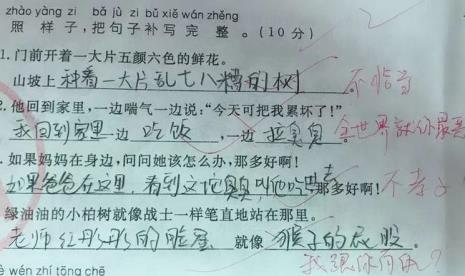 zhào yàng zi bǎ jù zi bǔ xiě wán zhěng
照样子，把句子补写完整。(10分)
1.门前开着一大片五颜六色的鲜花。
山坡上种着一大片乱七八糟的树。不临高
2.他回到家里，一边喘气一边说：“今天可把我累坏了！”
我回到家里一边吃饭，一边拉臭臭。全世界就你最
.如果妈妈在身边，问问她该怎么办，那多好啊！
如果爸爸在这里，看到这陀臭臭叫他吃，那多好啊！不孝子
绿油油的小柏树就像战士一样笔直地站在那里。
老师红彤彤的脸蛋就像猴子的屁股。
我跟你何仇？
è wén zhī tōng chē